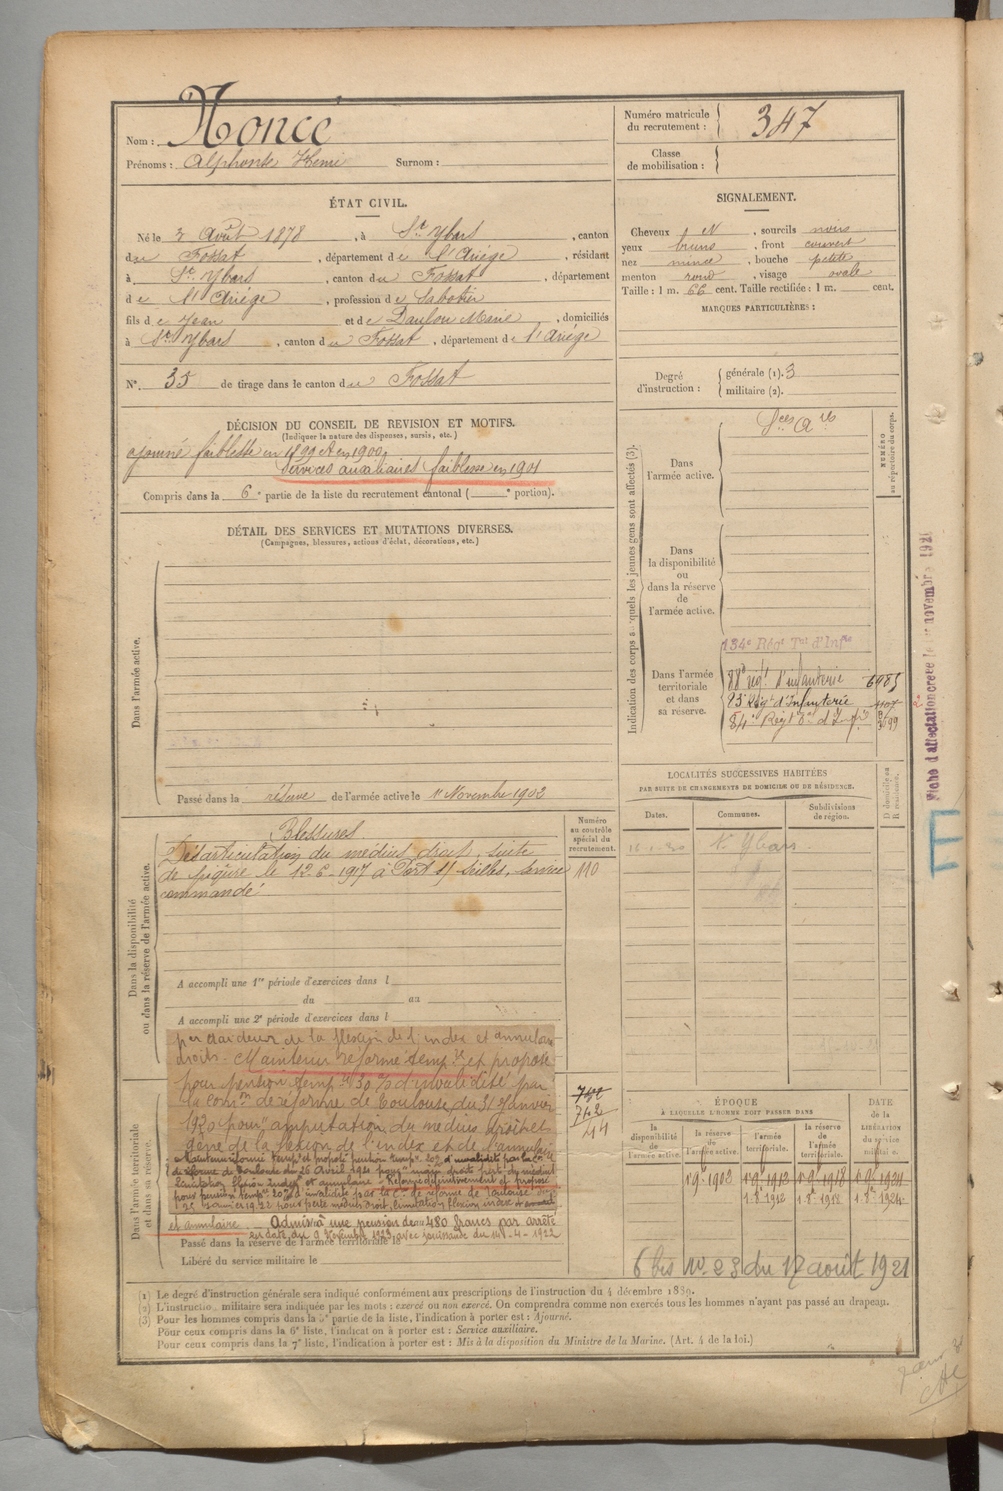 Nom : Honcé
Prénoms : Alphonse Henri Surnom :
Numéro matricule du recrutement : 347
Classe de mobilisation :
ÉTAT CIVIL.
Né le 3 Août 1878, à St Ybars, canton
du Fossat, département de l'Ariège, résidant
à St Ybars, canton du Fossat, département
de l'Ariège, profession de Sabotier
fils de Jean et de Daulou Marie, domiciliés
à St Ybars, canton du Fossat, département de l'Ariège
N° 35 de tirage dans le canton du Fossat
SIGNALEMENT.
Cheveux N, sourcils noirs
yeux bruns, front couvert
nez mince, bouche petite
menton rond, visage ovale
Taille : 1 m. 66 cent. Taille rectifiée : 1 m. cent.
MARQUES PARTICULIÈRES :
Degré d'instruction : générale (1). 3
militaire (2).
DÉCISION DU CONSEIL DE REVISION ET MOTIFS.
(Indiquer la nature des dispenses, sursis, etc.)
ajourné faiblesse en 1899 et en 1900,
Services auxiliaires faiblesse en 1901
Compris dans la 6e partie de la liste du recrutement cantonal ( e portion).
DÉTAIL DES SERVICES ET MUTATIONS DIVERSES.
(Campagnes, blessures, actions d'éclat, décorations, etc.)
Dans l'armée active.
Passé dans la réserve de l'armée active le 1r Novembre 1902
Indication des corps auxquels les jeunes gens sont affectés (3).
NUMÉRO au répertoire du corps.
Dans l'armée active.
Sces Ares
Dans la disponibilité ou dans la réserve de l'armée active.
Dans l'armée territoriale et dans sa réserve.
134e Régt Tal d'Infie
88e régt d'infanterie
83e Régt d'Infanterie
Fiche d'affectation créée le 1er novembre 1921
E
LOCALITÉS SUCCESSIVES HABITÉES
PAR SUITE DE CHANGEMENTS DE DOMICILE OU DE RÉSIDENCE.
Dates. Communes. Subdivisions de région. D domicile ou R résidence.
St Ybars
Dans la disponibilité ou dans la réserve de l'armée active.
Numéro au contrôle spécial du recrutement.
110
Blessures.
Désarticulation du médius droit, suite
de piqûre le 12-6-1917 à Port St Louis, service
commandé
A accompli une 1re période d'exercices dans l
du au
A accompli une 2e période d'exercices dans l
par raideur de la flexion de l'index et annulaire
droits - Maintenu réformé tempre et proposé
pour pension tempre 30 % d'invalidité par
la comon de réforme de Toulouse du 31 Janvier
1920 pour amputation du médius droit et
gêne de la flexion de l'index et de l'annulaire
Maintenu réformé tempre et proposé pension tempre 20% d'invalidité par la Con
de réforme de Toulouse du 26 Avril 1921 pour main droite perte du médius
limitation flexion index et annulaire. Réformé définitivement et proposé
pour pension tempre 20% d'invalidité par la Con de réforme de Toulouse
pour perte médius droit, limitation flexion index
et annulaire Admis à une pension de 480 francs par arrêté
en date du 9 Novembre 1923, avec jouissance du 14-4-1922
Dans l'armée territoriale et dans sa réserve.
742
44
Passé dans la réserve de l'armée territoriale le
Libéré du service militaire le
ÉPOQUE À LAQUELLE L'HOMME DOIT PASSER DANS
la disponibilité de l'armée active. la réserve de l'armée active. l'armée territoriale. la réserve de l'armée territoriale. DATE de la LIBÉRATION du service militaire.
1.9.1902 1.9.1912 1.9.1918 1.9.1924
1.8.1912
6 bis no 23 du 17 août 1921
(1) Le degré d'instruction générale sera indiqué conformément aux prescriptions de l'instruction du 4 décembre 1889.
(2) L'instruction militaire sera indiquée par les mots : exercé ou non exercé. On comprendra comme non exercés tous les hommes n'ayant pas passé au drapeau.
(3) Pour les hommes compris dans la 5e partie de la liste, l'indication à porter est : Ajourné.
Pour ceux compris dans la 6e liste, l'indication à porter est : Service auxiliaire.
Pour ceux compris dans la 7e liste, l'indication à porter est : Mis à la disposition du Ministre de la Marine. (Art. 4 de la loi.)